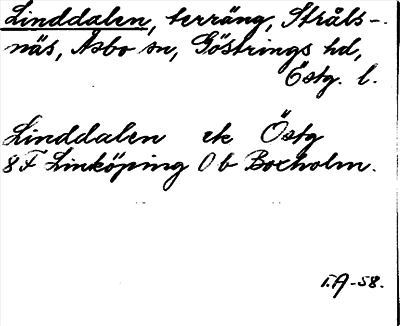 Linddalen, terräng, Stråls-
näs, Åsbo sn, Göstrings hd,
Östg. l.
Linddalen ek Östg
8F Linköping 0b Boxholm.
T.A-58.